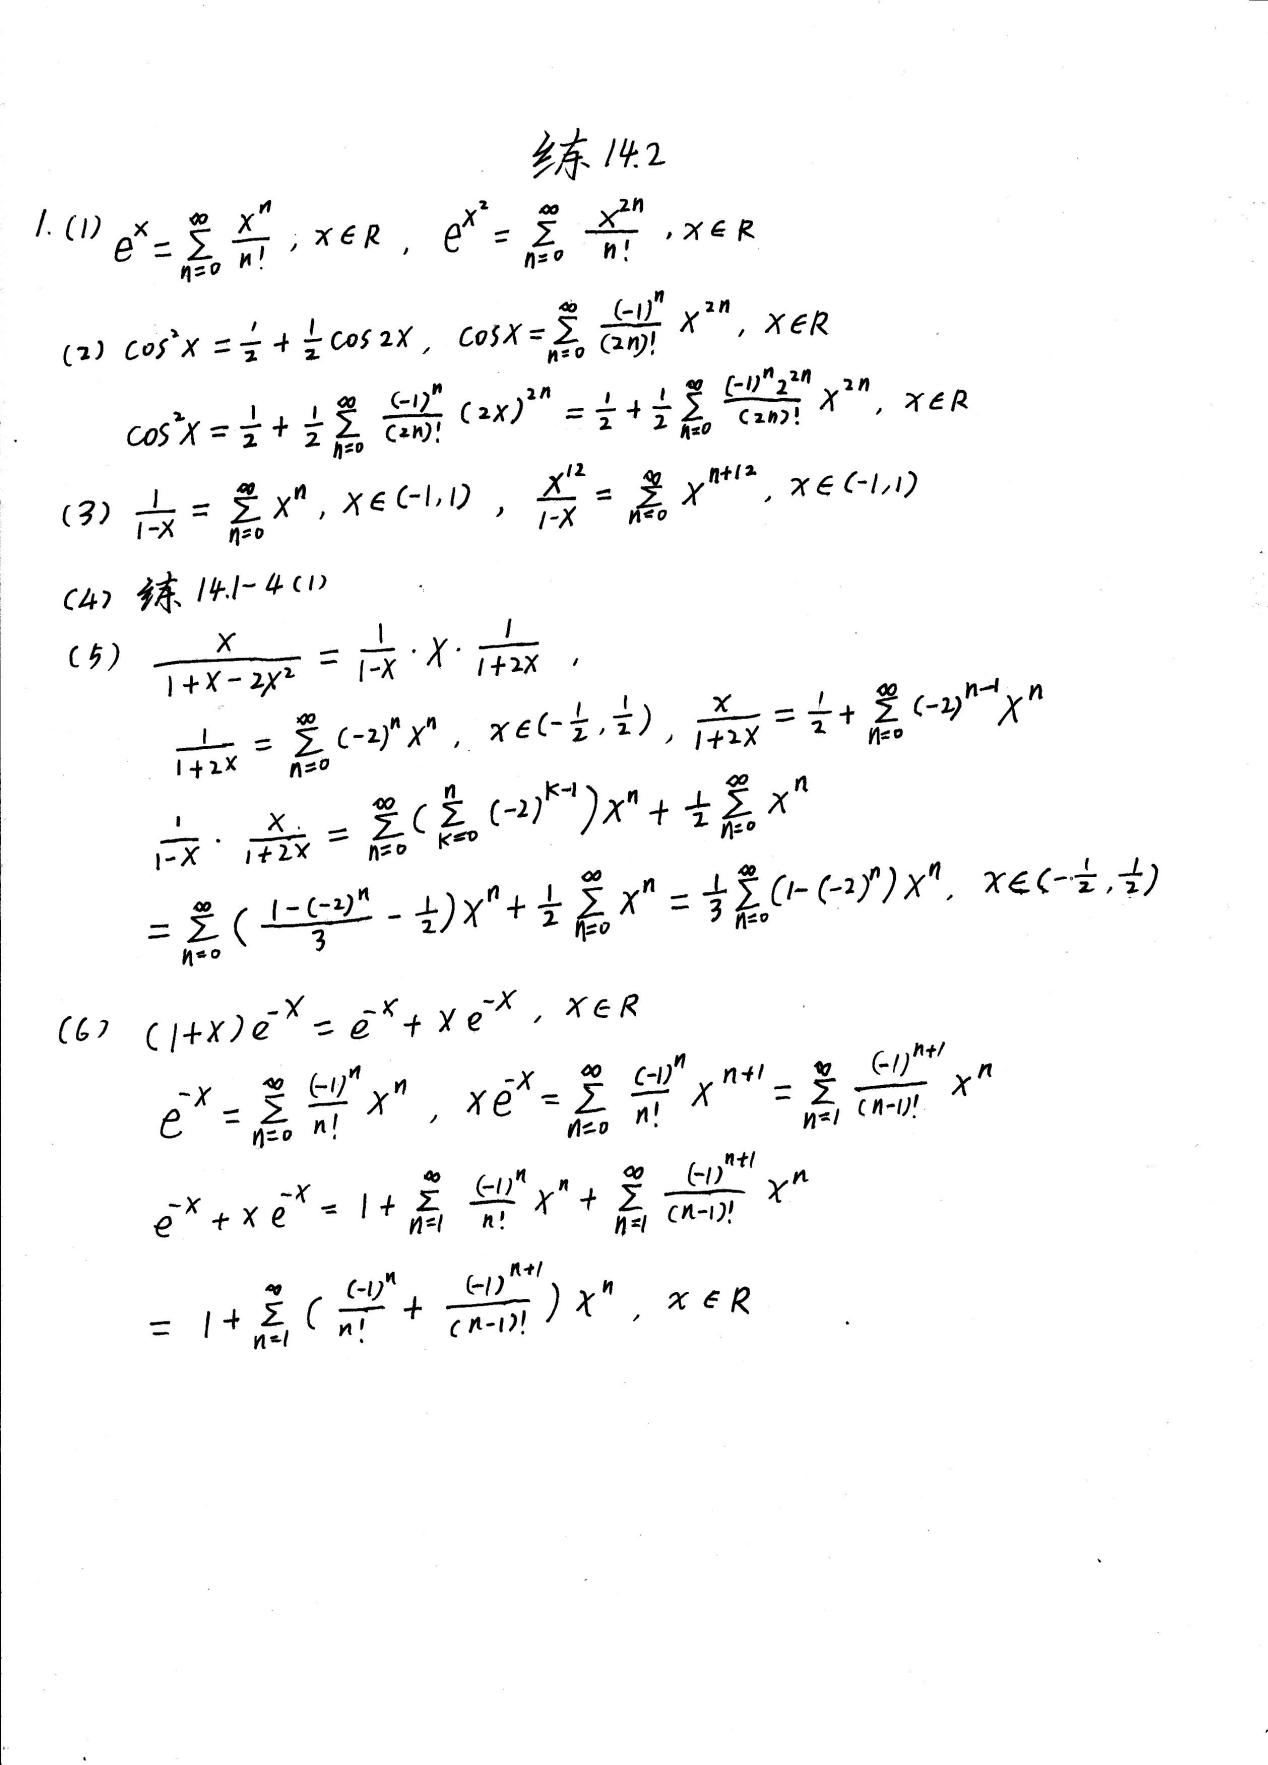 练 14.2
1. (1) e^x = ∑_{n=0}^{∞} x^n/n! , x∈R , e^{x^2} = ∑_{n=0}^{∞} x^{2n}/n! , x∈R
(2) cos^2 x = 1/2 + 1/2 cos 2x , cos x = ∑_{n=0}^{∞} (-1)^n/(2n)! x^{2n} , x∈R
cos^2 x = 1/2 + 1/2 ∑_{n=0}^{∞} (-1)^n/(2n)! (2x)^{2n} = 1/2 + 1/2 ∑_{n=0}^{∞} (-1)^n 2^{2n}/(2n)! x^{2n} , x∈R
(3) 1/(1-x) = ∑_{n=0}^{∞} x^n , x∈(-1,1) , x^{12}/(1-x) = ∑_{n=0}^{∞} x^{n+12} , x∈(-1,1)
(4) 练 14.1-4(1)
(5) x/(1+x-2x^2) = 1/(1-x) · x · 1/(1+2x) ,
1/(1+2x) = ∑_{n=0}^{∞} (-2)^n x^n , x∈(-1/2, 1/2) , x/(1+2x) = 1/2 + ∑_{n=0}^{∞} (-2)^{n-1} x^n
1/(1-x) · x/(1+2x) = ∑_{n=0}^{∞} (∑_{k=0}^{n} (-2)^{k-1}) x^n + 1/2 ∑_{n=0}^{∞} x^n
= ∑_{n=0}^{∞} ((1-(-2)^n)/3 - 1/2) x^n + 1/2 ∑_{n=0}^{∞} x^n = 1/3 ∑_{n=0}^{∞} (1-(-2)^n) x^n , x∈(-1/2, 1/2)
(6) (1+x)e^{-x} = e^{-x} + x e^{-x} , x∈R
e^{-x} = ∑_{n=0}^{∞} (-1)^n/n! x^n , x e^{-x} = ∑_{n=0}^{∞} (-1)^n/n! x^{n+1} = ∑_{n=1}^{∞} (-1)^{n+1}/(n-1)! x^n
e^{-x} + x e^{-x} = 1 + ∑_{n=1}^{∞} (-1)^n/n! x^n + ∑_{n=1}^{∞} (-1)^{n+1}/(n-1)! x^n
= 1 + ∑_{n=1}^{∞} ((-1)^n/n! + (-1)^{n+1}/(n-1)!) x^n , x∈R